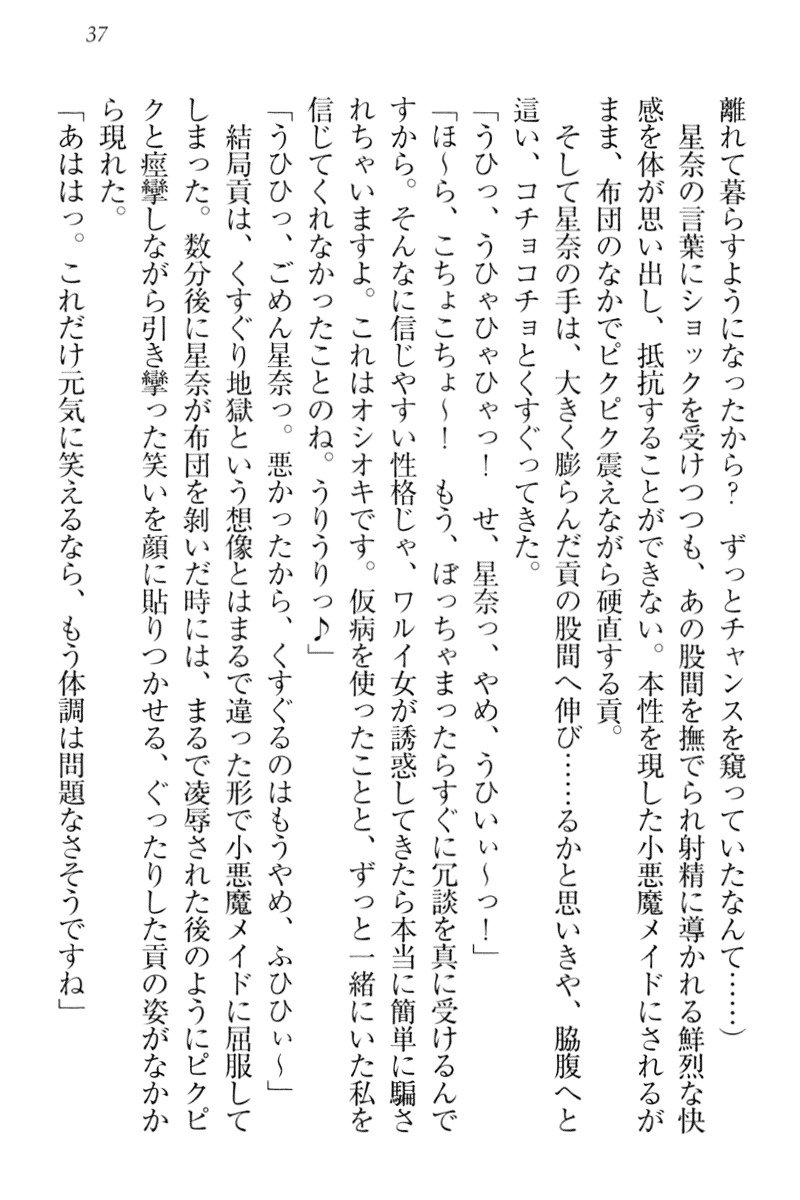 37
離れて暮らすようになったから？　ずっとチャンスを窺っていたなんて……）
　星奈の言葉にショックを受けつつも、あの股間を撫でられ射精に導かれる鮮烈な快
感を体が思い出し、抵抗することができない。本性を現した小悪魔メイドにされるが
まま、布団のなかでピクピク震えながら硬直する貢。
　そして星奈の手は、大きく膨らんだ貢の股間へ伸び……るかと思いきや、脇腹へと
這い、コチョコチョとくすぐってきた。
「うひっ、うひゃひゃひゃっ！　せ、星奈っ、やめ、うひいぃ〜っ！」
「ほ〜ら、こちょこちょ〜！　もう、ぼっちゃまったらすぐに冗談を真に受けるんで
すから。そんなに信じやすい性格じゃ、ワルイ女が誘惑してきたら本当に簡単に騙さ
れちゃいますよ。これはオシオキです。仮病を使ったことと、ずっと一緒にいた私を
信じてくれなかったことのね。うりうりっ♪」
「うひひっ、ごめん星奈っ。悪かったから、くすぐるのはもうやめ、ふひひぃ〜」
　結局貢は、くすぐり地獄という想像とはまるで違った形で小悪魔メイドに屈服して
しまった。数分後に星奈が布団を剥いだ時には、まるで凌辱された後のようにピクピ
クと痙攣しながら引き攣った笑いを顔に貼りつかせる、ぐったりした貢の姿がなかか
ら現れた。
「あははっ。これだけ元気に笑えるなら、もう体調は問題なさそうですね」